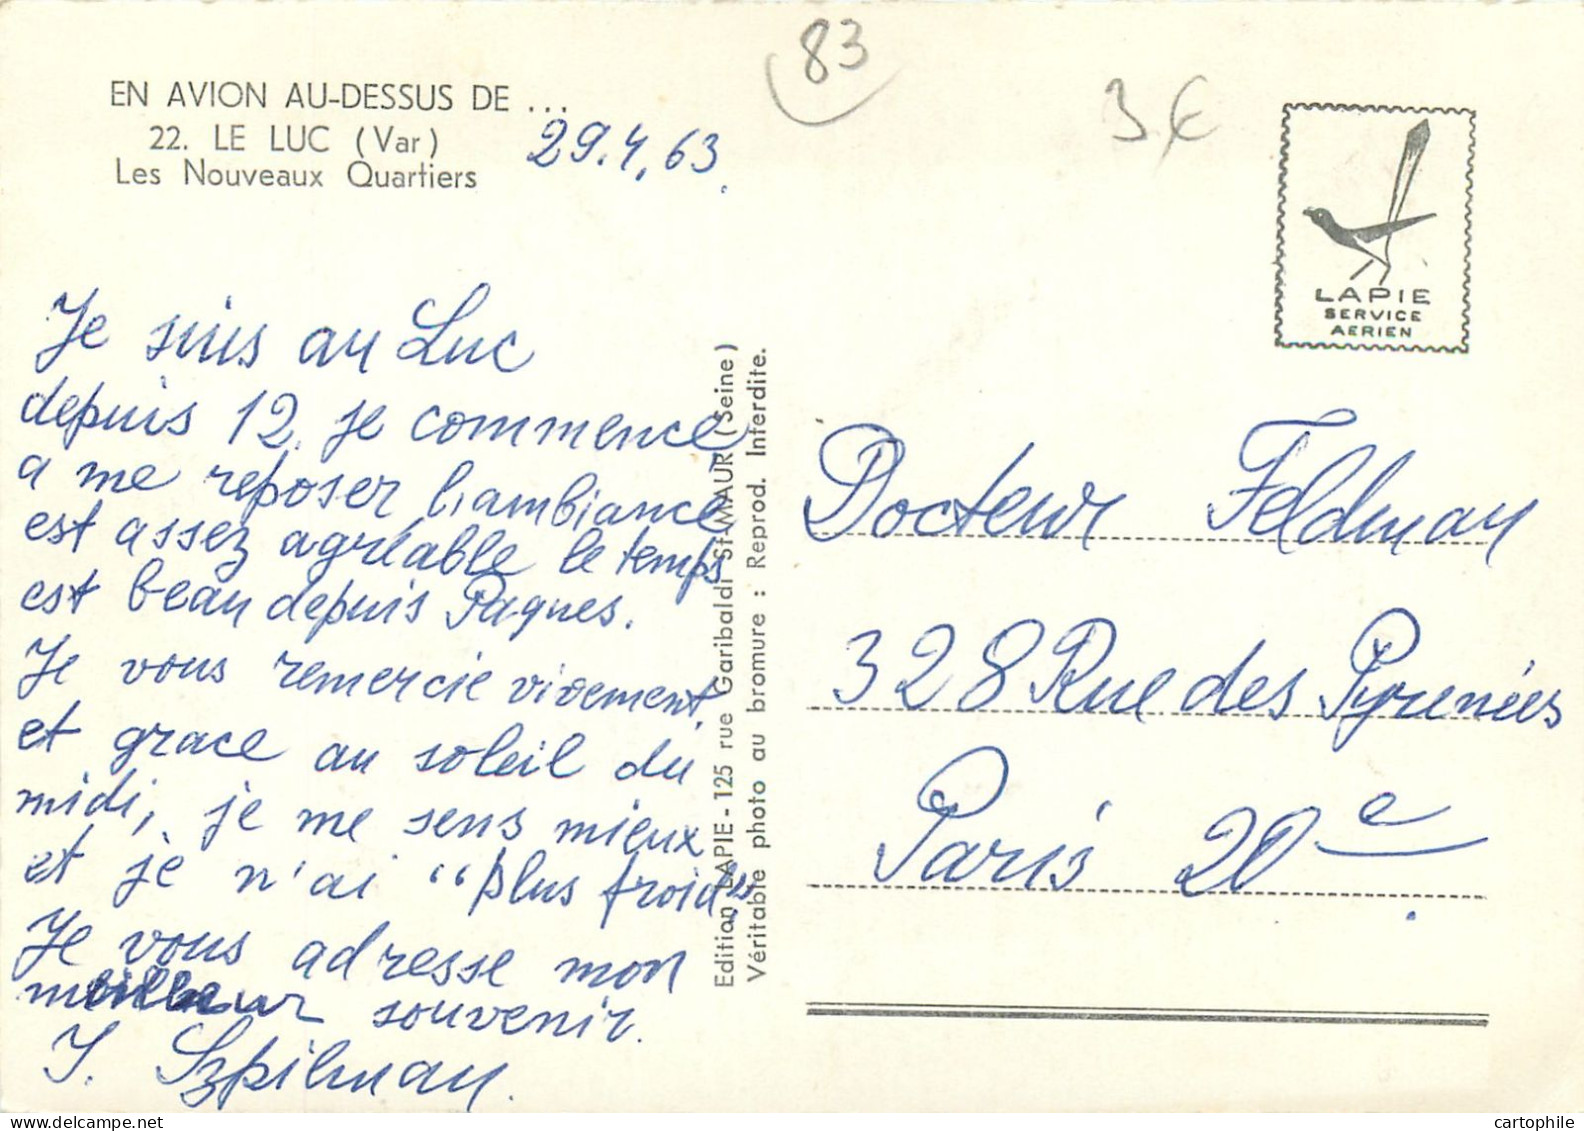 EN AVION AU-DESSUS DE ...
22. LE LUC (Var)
Les Nouveaux Quartiers
29.4.63.
83
3€
LAPIE
SERVICE
AERIEN
Je suis au Luc
depuis 12. je commence
a me reposer l'ambiance
est assez agréable le temps
est beau depuis Paques.
Je vous remercie vivement,
et grace au soleil du
midi, je me sens mieux
et je n'ai "plus froid"
Je vous adresse mon
meilleur souvenir.
J. Szpilman.
Edition LAPIE - 125 rue Garibaldi St-MAUR (Seine)
Véritable photo au bromure : Reprod. Interdite.
Docteur Feldman
328 Rue des Pyrenées
Paris 20e.
cartophile.com